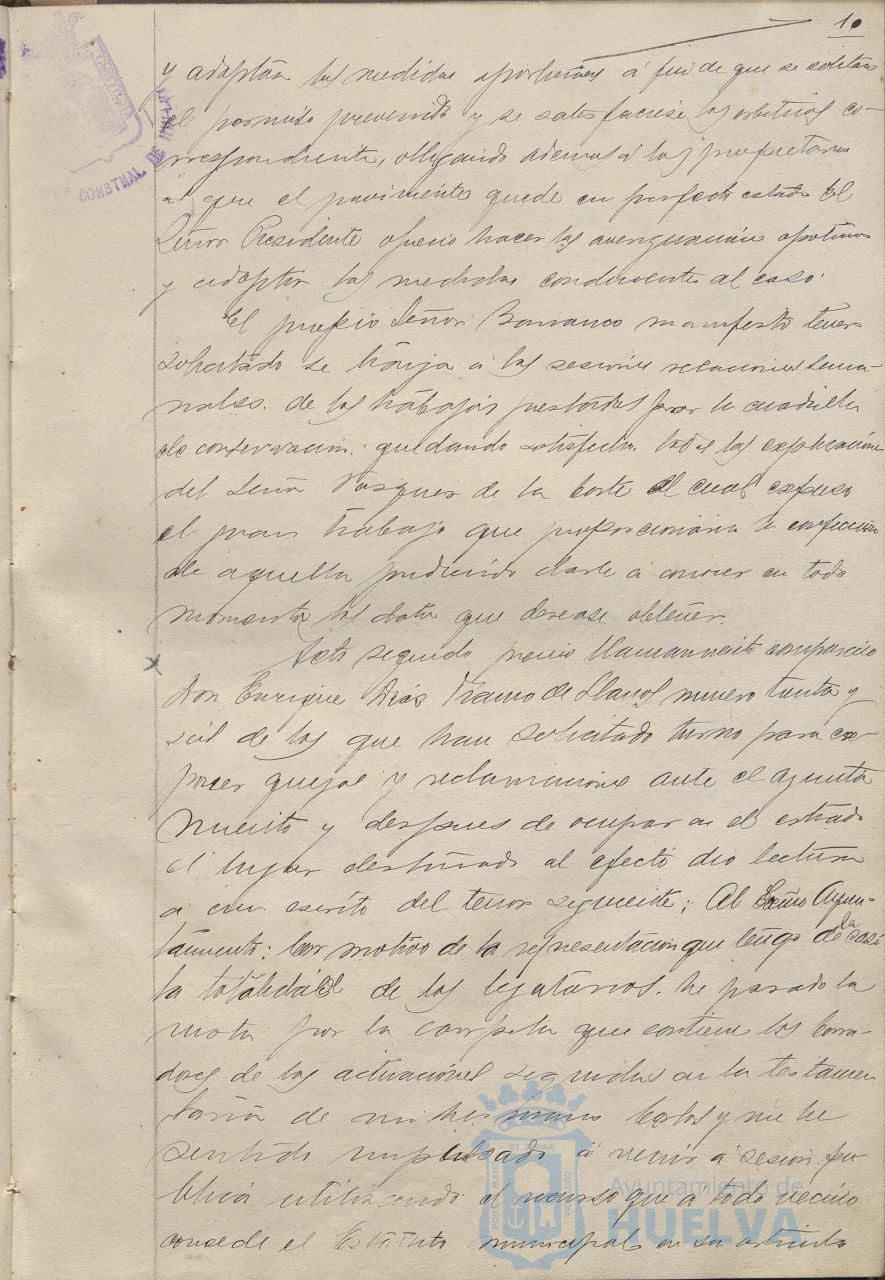 10
y adoptar las medidas oportunas á fin de que se solicitara
el permiso prevenido y se satisfaciese los arbitrios co-
rrespondiente, obligando ademas á los propietarios
a que el pavimento quede en perfecto estado El
Señor Presidente ofrecio hacer las averiguacion oportunas
y adoptar las medidas conducentes al caso.
El propio Señor Barranco manifesto tener
solicitado se traiga á las sesiones relaciones sema-
nales de los trabajos prestados por la cuadrilla
de conservacion. quedando satisfecho las explicaciones
del Señor Vazquez de la Corte el cual expuso
el gran trabajo que proporcionaria la confeccion
de aquella pudiendo darle á conocer en todo
momento los datos que desease obtener.
Acto seguido previo llamamiento comparecio
Don Enrique Dias Franco de Llanos numero treinta y
seis de los que han solicitado turno para ex-
poner quejas y reclamaciones ante el Ayunta
miento y despues de ocupar en el estrado
el lugar destinado al efecto dio lectura
a un escrito del tenor siguiente; Al Exmo Ayun-
tamiento: Con motivo de la representacion que tengo de la casi
la totalidad de los legatarios. he pasado la
vista por la carpeta que contiene los borra-
dores de las actuaciones seguidas en la testamen
taria de mi hermano Carlos y me he
sentido impulsado á venir á sesion pu
blica utilizando el recurso que a todo vecino
concede el Estatuto municipal en su articulo
CONSTNAL DE
Ayuntamiento de
HUELVA